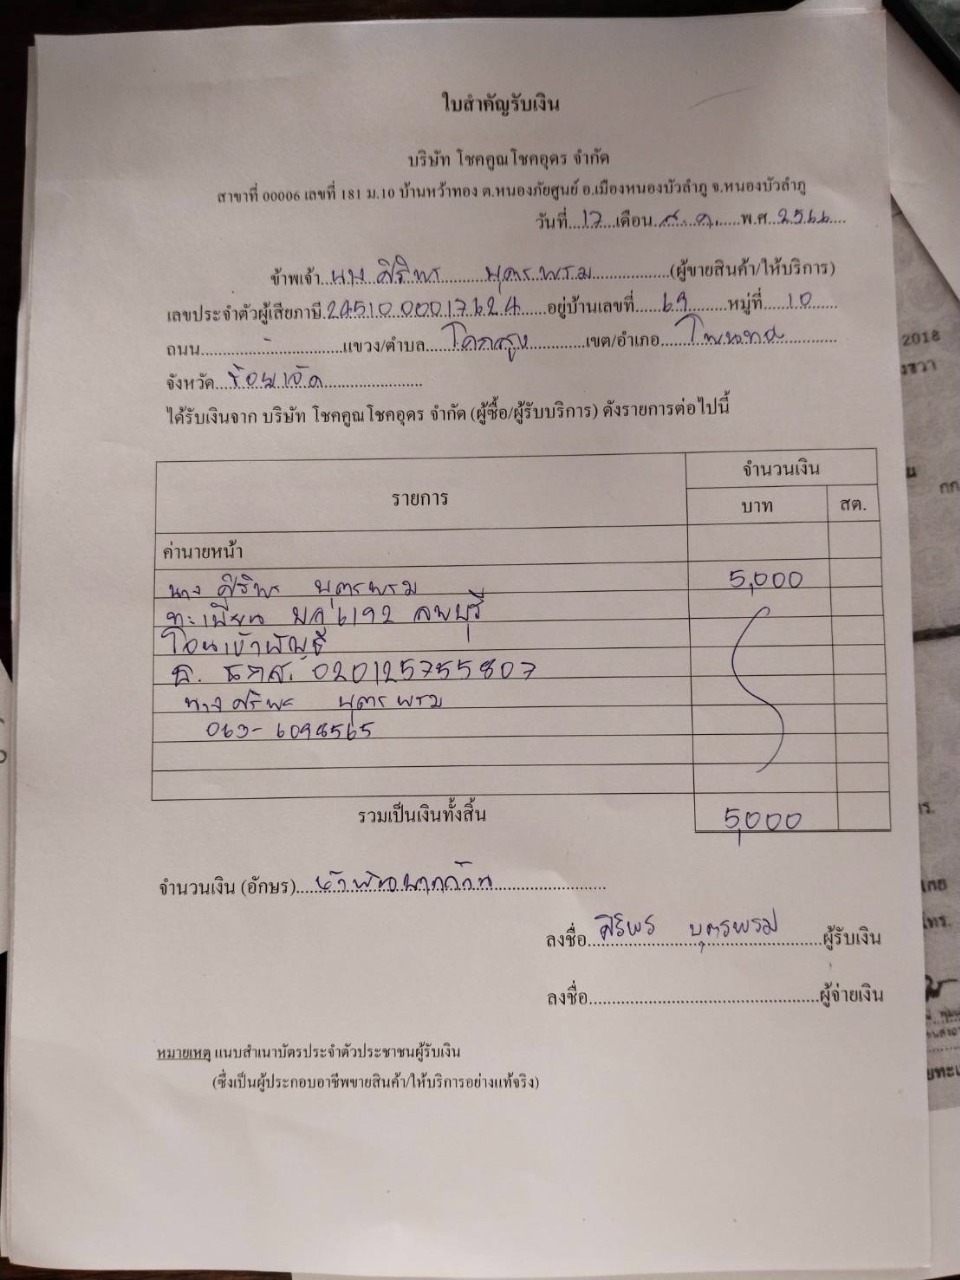 ใบสำคัญรับเงิน
บริษัท โชคคูณโชคอุดร จำกัด
สาขาที่ 00006 เลขที่ 181 ม.10 บ้านหว้าทอง ต.หนองภัยศูนย์ อ.เมืองหนองบัวลำภู จ.หนองบัวลำภู
วันที่...17...เดือน...ส.ค....พ.ศ.2566....
ข้าพเจ้า...นาง ศิริพร.......บุตรพรม...............(ผู้ขายสินค้า/ให้บริการ)
เลขประจำตัวผู้เสียภาษี.2451000017624.....อยู่บ้านเลขที่.....69.......หมู่ที่....10....
ถนน...............................แขวง/ตำบล....โคกสูง............เขต/อำเภอ....
จังหวัด...ร้อยเอ็ด......................
ได้รับเงินจาก บริษัท โชคคูณโชคอุดร จำกัด (ผู้ซื้อ/ผู้รับบริการ) ดังรายการต่อไปนี้
รายการ จำนวนเงิน
บาท สต.
ค่านายหน้า
นาง ศิริพร บุตรพรม 5,000
ทะเบียน 6192 ลพบุรี
โอนเข้าบัญชี
ธ. ธกส. 020125755807
นาง ศิริพร บุตรพรม
063-6098565
รวมเป็นเงินทั้งสิ้น 5,000
จำนวนเงิน (อักษร)....ห้าพันบาทถ้วน.........................
ลงชื่อ..ศิริพร บุตรพรม.........ผู้รับเงิน
ลงชื่อ..................................................ผู้จ่ายเงิน
หมายเหตุ แนบสำเนาบัตรประจำตัวประชาชนผู้รับเงิน
(ซึ่งเป็นผู้ประกอบอาชีพขายสินค้า/ให้บริการอย่างแท้จริง)
2018